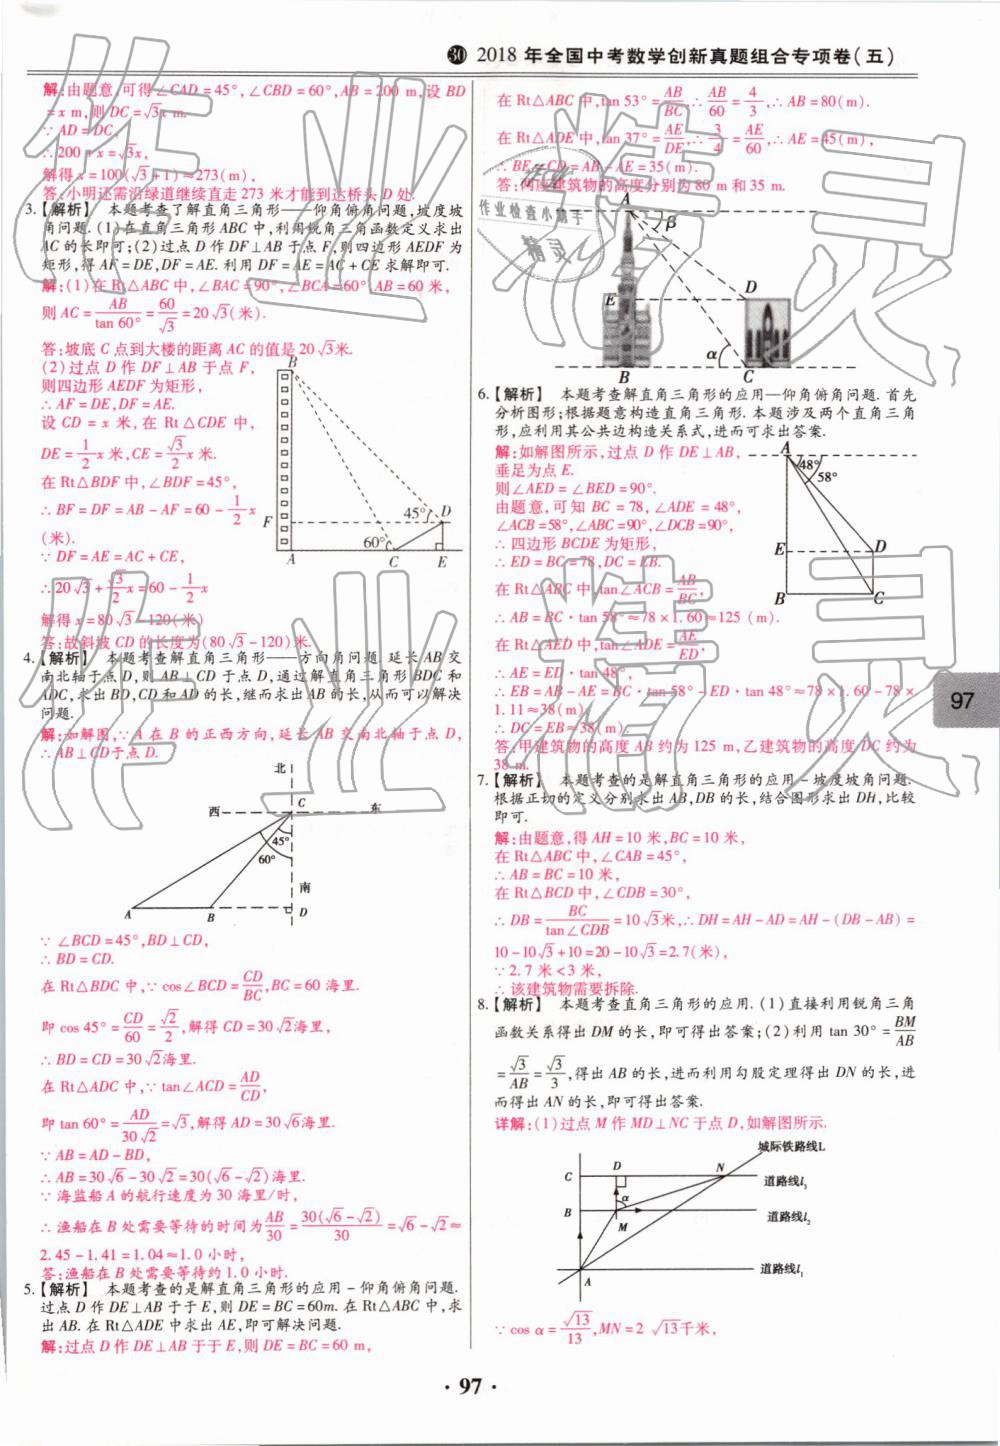 30 2018年全国中考数学创新真题组合专项卷(五)
解:由题意,可得∠CAD=45°,∠CBD=60°,AB=200 m,设BD
=x m,则DC=√3x m.
∵AD=DC,
∴200+x=√3x,
解得x=100(√3+1)≈273(m),
答:小明还需沿绿道继续直走273米才能到达桥头D处.
3.【解析】 本题考查了解直角三角形——仰角俯角问题,坡度坡
角问题.(1)在直角三角形ABC中,利用锐角三角函数定义求出
AC的长即可;(2)过点D作DF⊥AB于点F,则四边形AEDF为
矩形,得AF=DE,DF=AE.利用DF=AE=AC+CE求解即可.
解:(1)在Rt△ABC中,∠BAC=90°,∠BCA=60°,AB=60米,
则AC=AB/tan 60°=60/√3=20√3(米).
答:坡底C点到大楼的距离AC的值是20√3米.
(2)过点D作DF⊥AB于点F,
则四边形AEDF为矩形,
∴AF=DE,DF=AE.
设CD=x米,在Rt△CDE中,
DE=1/2x米,CE=√3/2x米.
在Rt△BDF中,∠BDF=45°,
∴BF=DF=AB-AF=60-1/2x
(米).
∵DF=AE=AC+CE,
∴20√3+√3/2x=60-1/2x
解得x=80√3-120(米)
答:故斜坡CD的长度为(80√3-120)米.
B
F
45°
D
60°
A
C
E
4.【解析】 本题考查解直角三角形——方向角问题.延长AB交
南北轴于点D,则AB⊥CD于点D,通过解直角三角形BDC和
ADC,求出BD,CD和AD的长,继而求出AB的长,从而可以解决
问题.
解:如解图,∵A在B的正西方向,延长AB交南北轴于点D,
∴AB⊥CD于点D.
北
西
C
东
45°
60°
南
A
B
D
∵∠BCD=45°,BD⊥CD,
∴BD=CD.
在Rt△BDC中,∵cos∠BCD=CD/BC,BC=60海里.
即cos 45°=CD/60=√2/2,解得CD=30√2海里,
∴BD=CD=30√2海里.
在Rt△ADC中,∵tan∠ACD=AD/CD,
即tan 60°=AD/30√2=√3,解得AD=30√6海里.
∵AB=AD-BD,
∴AB=30√6-30√2=30(√6-√2)海里.
∵海监船A的航行速度为30海里/时,
∴渔船在B处需要等待的时间为AB/30=30(√6-√2)/30=√6-√2≈
2.45-1.41=1.04≈1.0小时,
答:渔船在B处需要等待约1.0小时.
5.【解析】 本题考查的是解直角三角形的应用-仰角俯角问题.
过点D作DE⊥AB于于E,则DE=BC=60m.在Rt△ABC中,求
出AB.在Rt△ADE中求出AE,即可解决问题.
解:过点D作DE⊥AB于于E,则DE=BC=60 m,
在Rt△ABC中,tan 53°=AB/BC,∴AB/60=4/3,∴AB=80(m).
在Rt△ADE中,tan 37°=AE/DE,∴3/4=AE/60,∴AE=45(m),
∴BE=CD=AB-AE=35(m).
答:两座建筑物的高度分别为80 m和35 m.
作业检查小助手
精灵
A
β
E
D
α
B
C
6.【解析】 本题考查解直角三角形的应用—仰角俯角问题.首先
分析图形;根据题意构造直角三角形.本题涉及两个直角三角
形,应利用其公共边构造关系式,进而可求出答案.
解:如解图所示,过点D作DE⊥AB,
垂足为点E.
则∠AED=∠BED=90°.
由题意,可知BC=78,∠ADE=48°,
∠ACB=58°,∠ABC=90°,∠DCB=90°,
∴四边形BCDE为矩形,
∴ED=BC=78,DC=EB.
在Rt△ABC中,tan∠ACB=AB/BC,
∴AB=BC·tan 58°≈78×1.60≈125(m).
在Rt△AED中,tan∠ADE=AE/ED,
∴AE=ED·tan 48°,
∴EB=AB-AE=BC·tan 58°-ED·tan 48°≈78×1.60-78×
1.11≈38(m).
∴DC=EB≈38(m).
答:甲建筑物的高度AB约为125 m,乙建筑物的高度DC约为
38 m.
A
48°
58°
E
D
B
C
7.【解析】 本题考查的是解直角三角形的应用-坡度坡角问题.
根据正切的定义分别求出AB,DB的长,结合图形求出DH,比较
即可.
解:由题意,得AH=10米,BC=10米,
在Rt△ABC中,∠CAB=45°,
∴AB=BC=10米,
在Rt△BCD中,∠CDB=30°,
∴DB=BC/tan∠CDB=10√3米,∴DH=AH-AD=AH-(DB-AB)=
10-10√3+10=20-10√3=2.7(米),
∵2.7米<3米,
∴该建筑物需要拆除.
8.【解析】 本题考查直角三角形的应用.(1)直接利用锐角三角
函数关系得出DM的长,即可得出答案;(2)利用tan 30°=BM/AB
=√3/AB=√3/3,得出AB的长,进而利用勾股定理得出DN的长,进
而得出AN的长,即可得出答案.
详解:(1)过点M作MD⊥NC于点D,如解图所示.
城际铁路线L
C
D
N
道路线l₃
α
B
M
道路线l₂
A
道路线l₁
∵cos α=√13/13,MN=2√13千米,
97
· 97 ·
作业精灵
作业精灵